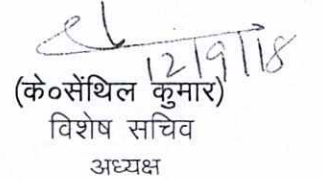 12/9/18
(के०सेंथिल कुमार)
विशेष सचिव
अध्यक्ष